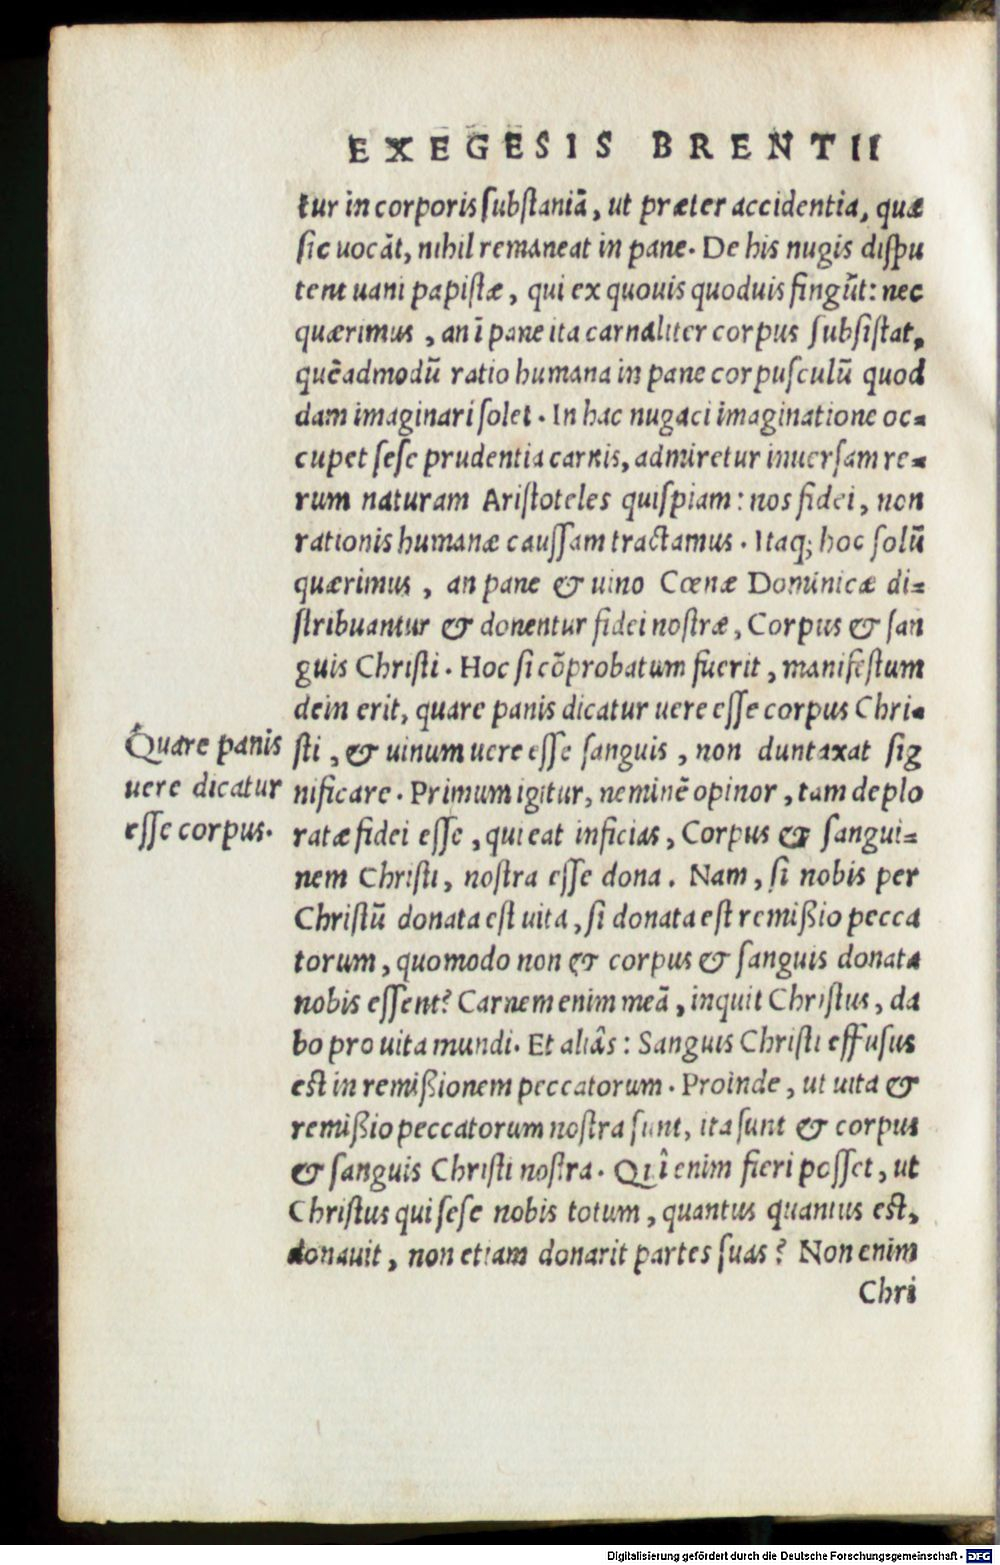 EXEGESIS BRENTII
tur in corporis substaniā, ut præter accidentia, quæ
sic uocāt, nihil remaneat in pane. De his nugis dispu
tent uani papistæ, qui ex quouis quoduis fingūt: nec
quærimus, an ī pane ita carnaliter corpus subsistat,
quēadmodū ratio humana in pane corpusculū quod
dam imaginari solet. In hac nugaci imaginatione oc=
cupet sese prudentia carnis, admiretur inuersam re=
rum naturam Aristoteles quispiam: nos fidei, non
rationis humanæ caussam tractamus. Itaq; hoc solū
quærimus, an pane & uino Cœnæ Dominicæ di=
stribuantur & donentur fidei nostræ, Corpus & san
guis Christi. Hoc si cōprobatum fuerit, manifestum
dein erit, quare panis dicatur uere esse corpus Chri=
sti, & uinum uere esse sanguis, non duntaxat sig
nificare. Primum igitur, neminē opinor, tam deplo
ratæ fidei esse, qui eat inficias, Corpus & sangui=
nem Christi, nostra esse dona. Nam, si nobis per
Christū donata est uita, si donata est remißio pecca
torum, quomodo non & corpus & sanguis donata
nobis essent? Carnem enim meā, inquit Christus, da
bo pro uita mundi. Et aliâs: Sanguis Christi effusus
est in remißionem peccatorum. Proinde, ut uita &
remißio peccatorum nostra sunt, ita sunt & corpus
& sanguis Christi nostra. Quî enim fieri posset, ut
Christus qui sese nobis totum, quantus quantus est,
donauit, non etiam donarit partes suas? Non enim
Chri
Quare panis
uere dicatur
esse corpus.
Digitalisierung gefördert durch die Deutsche Forschungsgemeinschaft - DFG